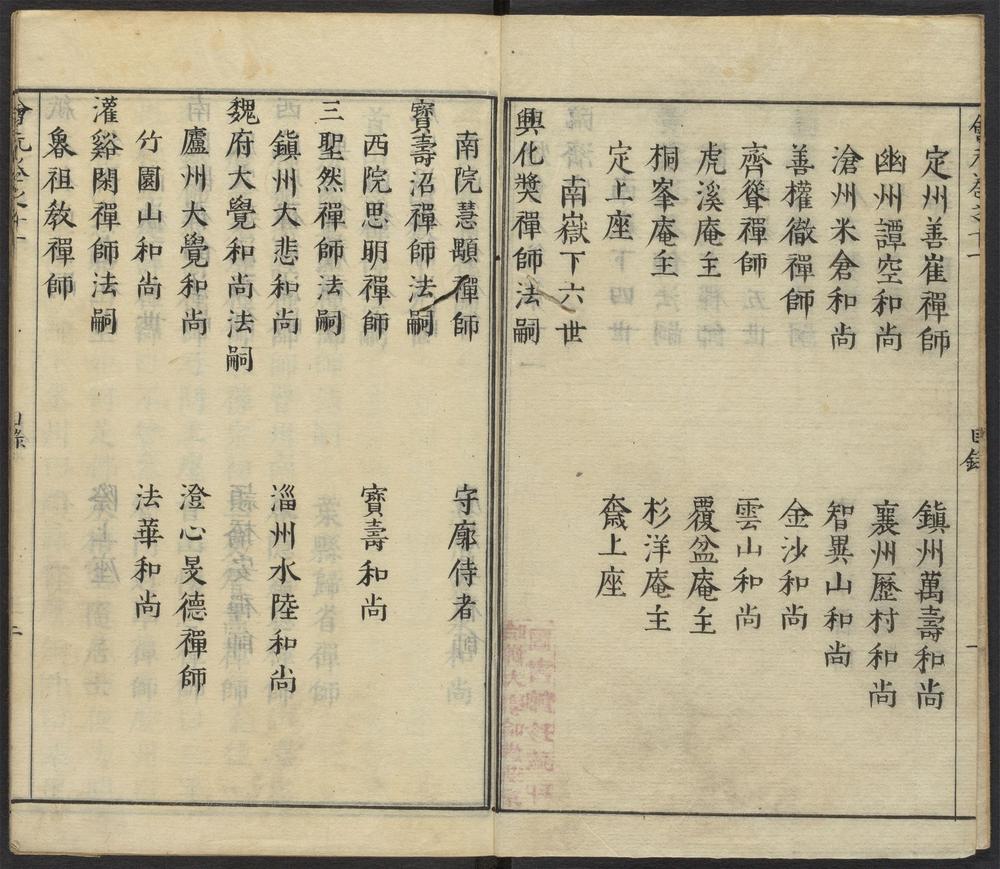 定州善崔禪師　鎭州萬壽和尚
幽州譚空和尚　襄州歷村和尚
滄州米倉和尚　智異山和尚
善權徹禪師　金沙和尚
齊聳禪師　雲山和尚
虎溪庵主　覆盆庵主
桐峯庵主　杉洋庵主
定上座　奯上座
南嶽下六世
興化奬禪師法嗣
南院慧顒禪師　守廓侍者
寶壽沼禪師法嗣
西院思明禪師　寶壽和尚
三聖然禪師法嗣
鎭州大悲和尚　淄州水陸和尚
魏府大覺和尚法嗣
廬州大覺和尚　澄心旻德禪師
竹園山和尚　法華和尚
灌谿閑禪師法嗣
魯祖敎禪師